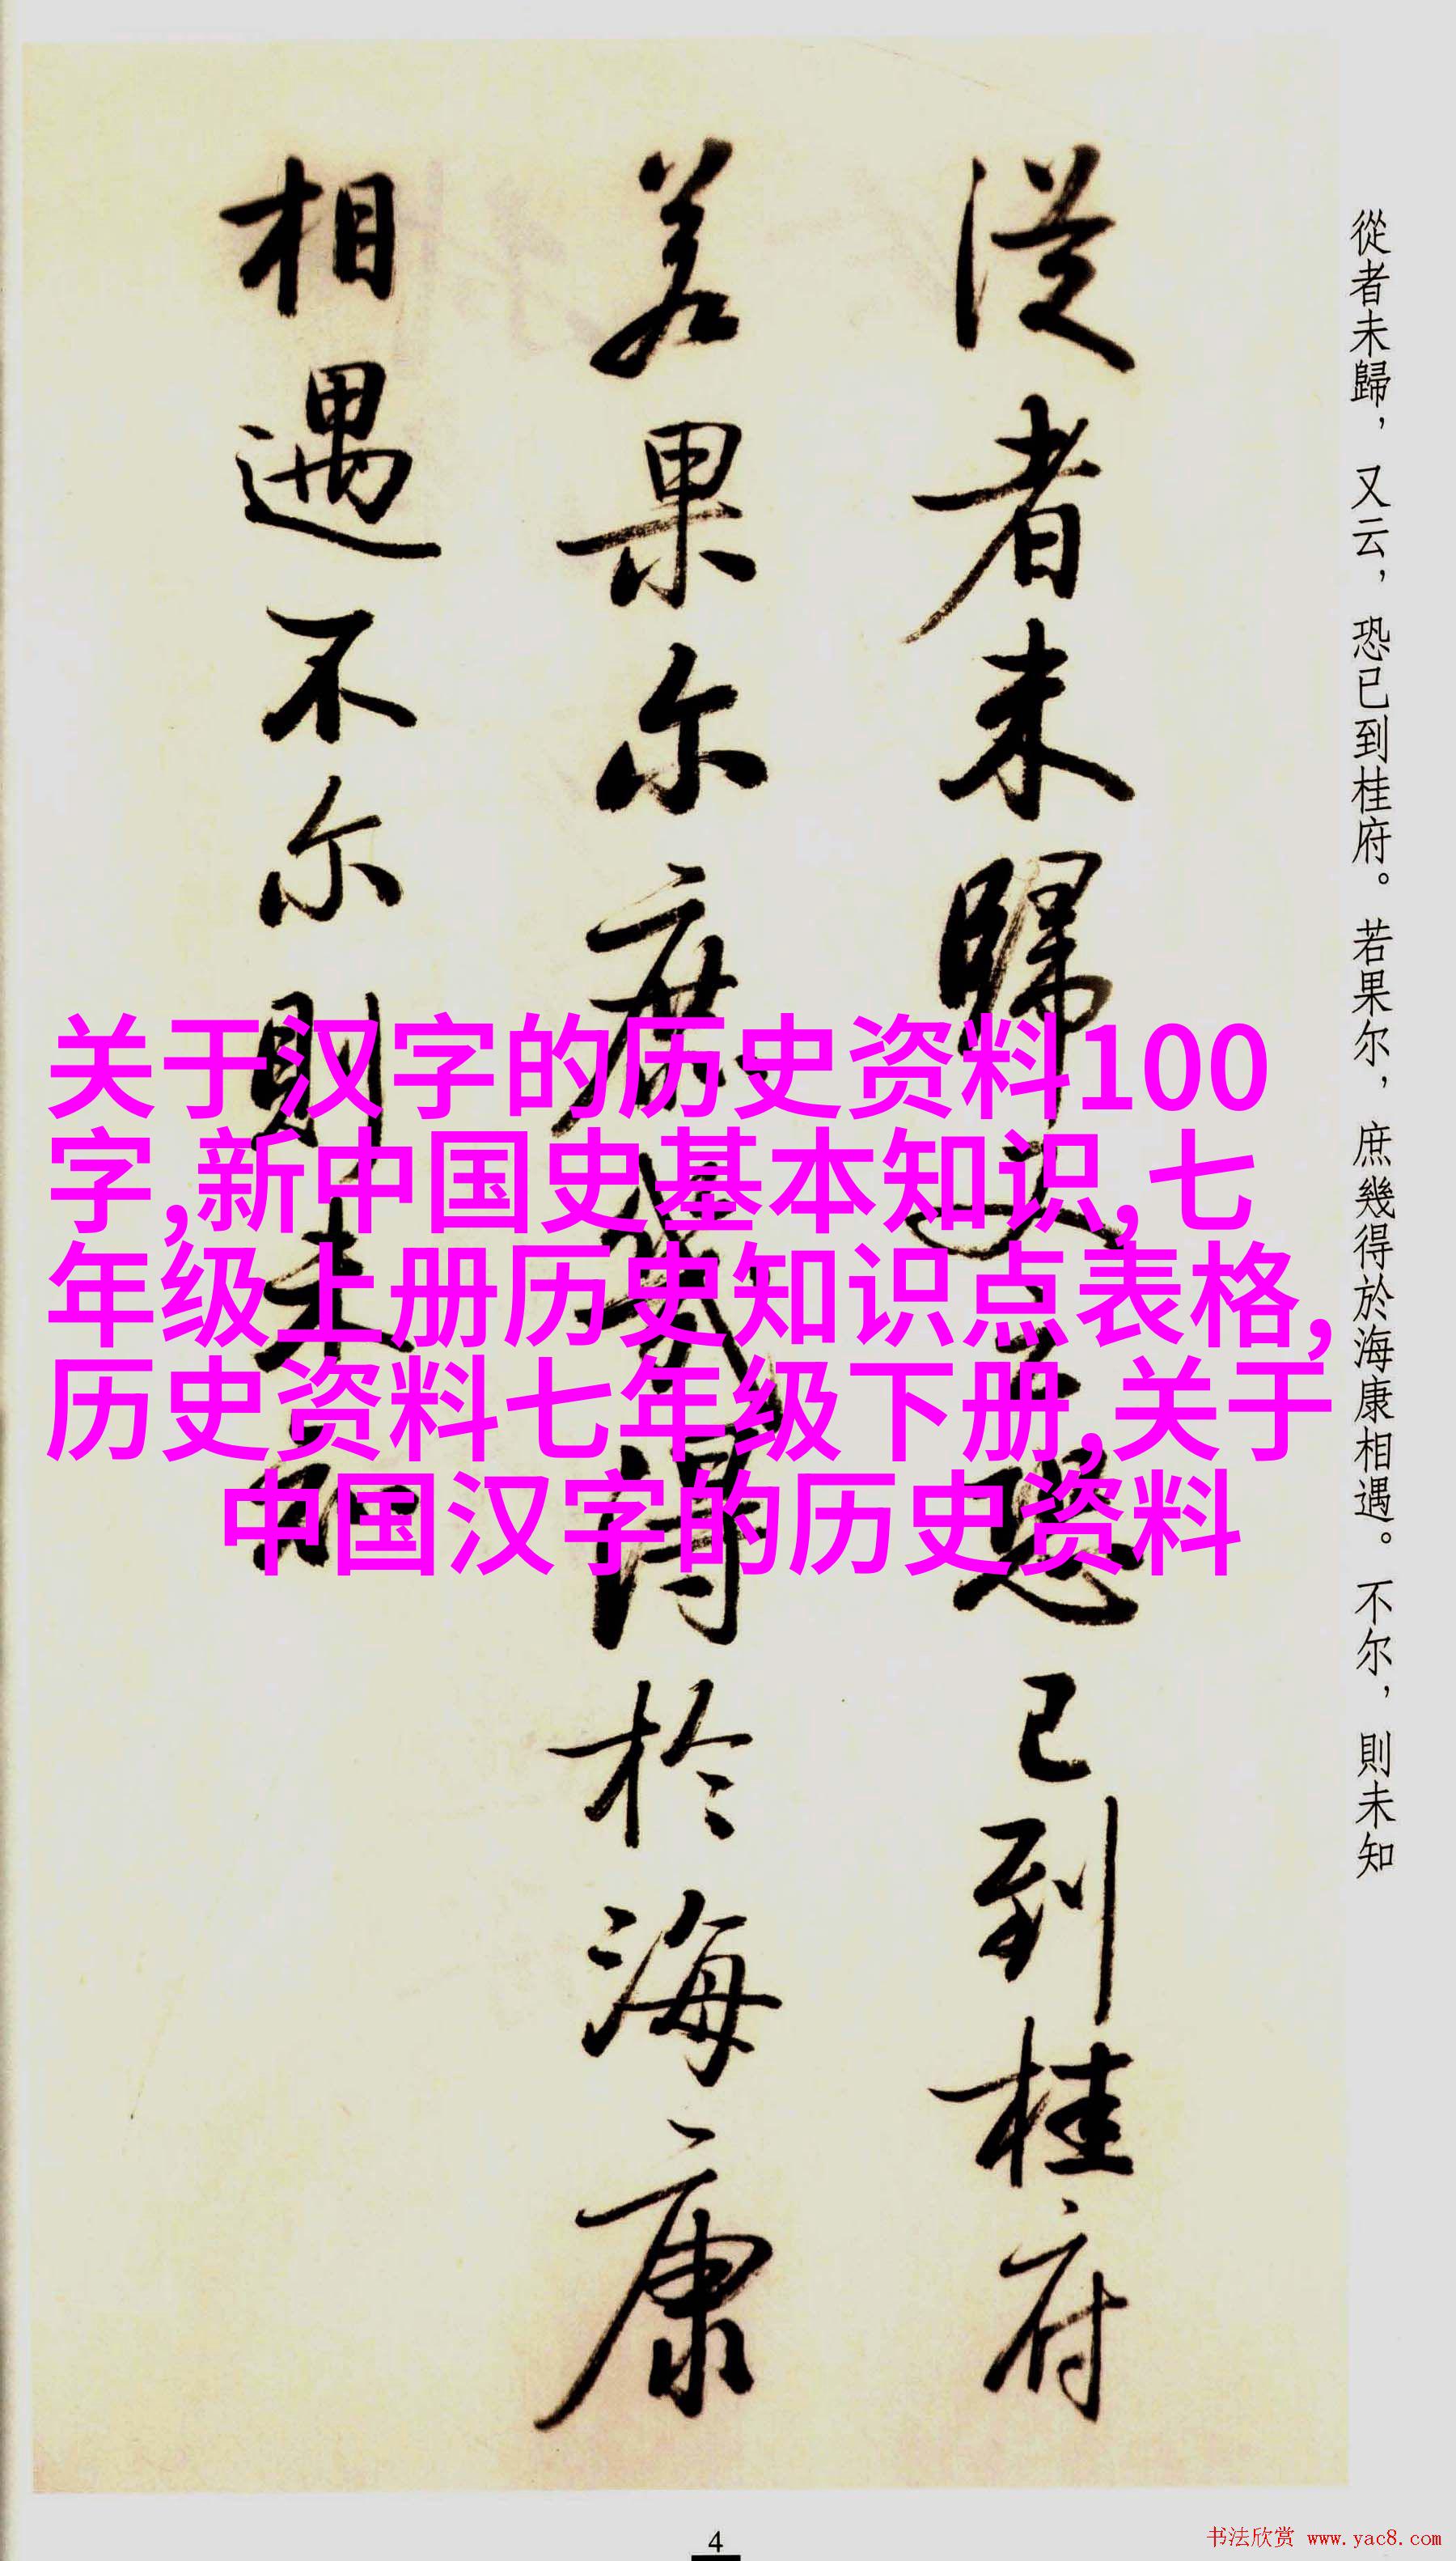 從者未歸，又云，恐已到桂府。若果尔，庶幾得於海康相遇。不尔，則未知
從者未歸又云恐已到桂府
若果尔庶幾得於海康
相遇不尔則未知
关于汉字的历史资料100
字,新中国史基本知识,七
年级上册历史知识点表格,
历史资料七年级下册,关于
中国汉字的历史资料
4
书法欣赏 www.yac8.com